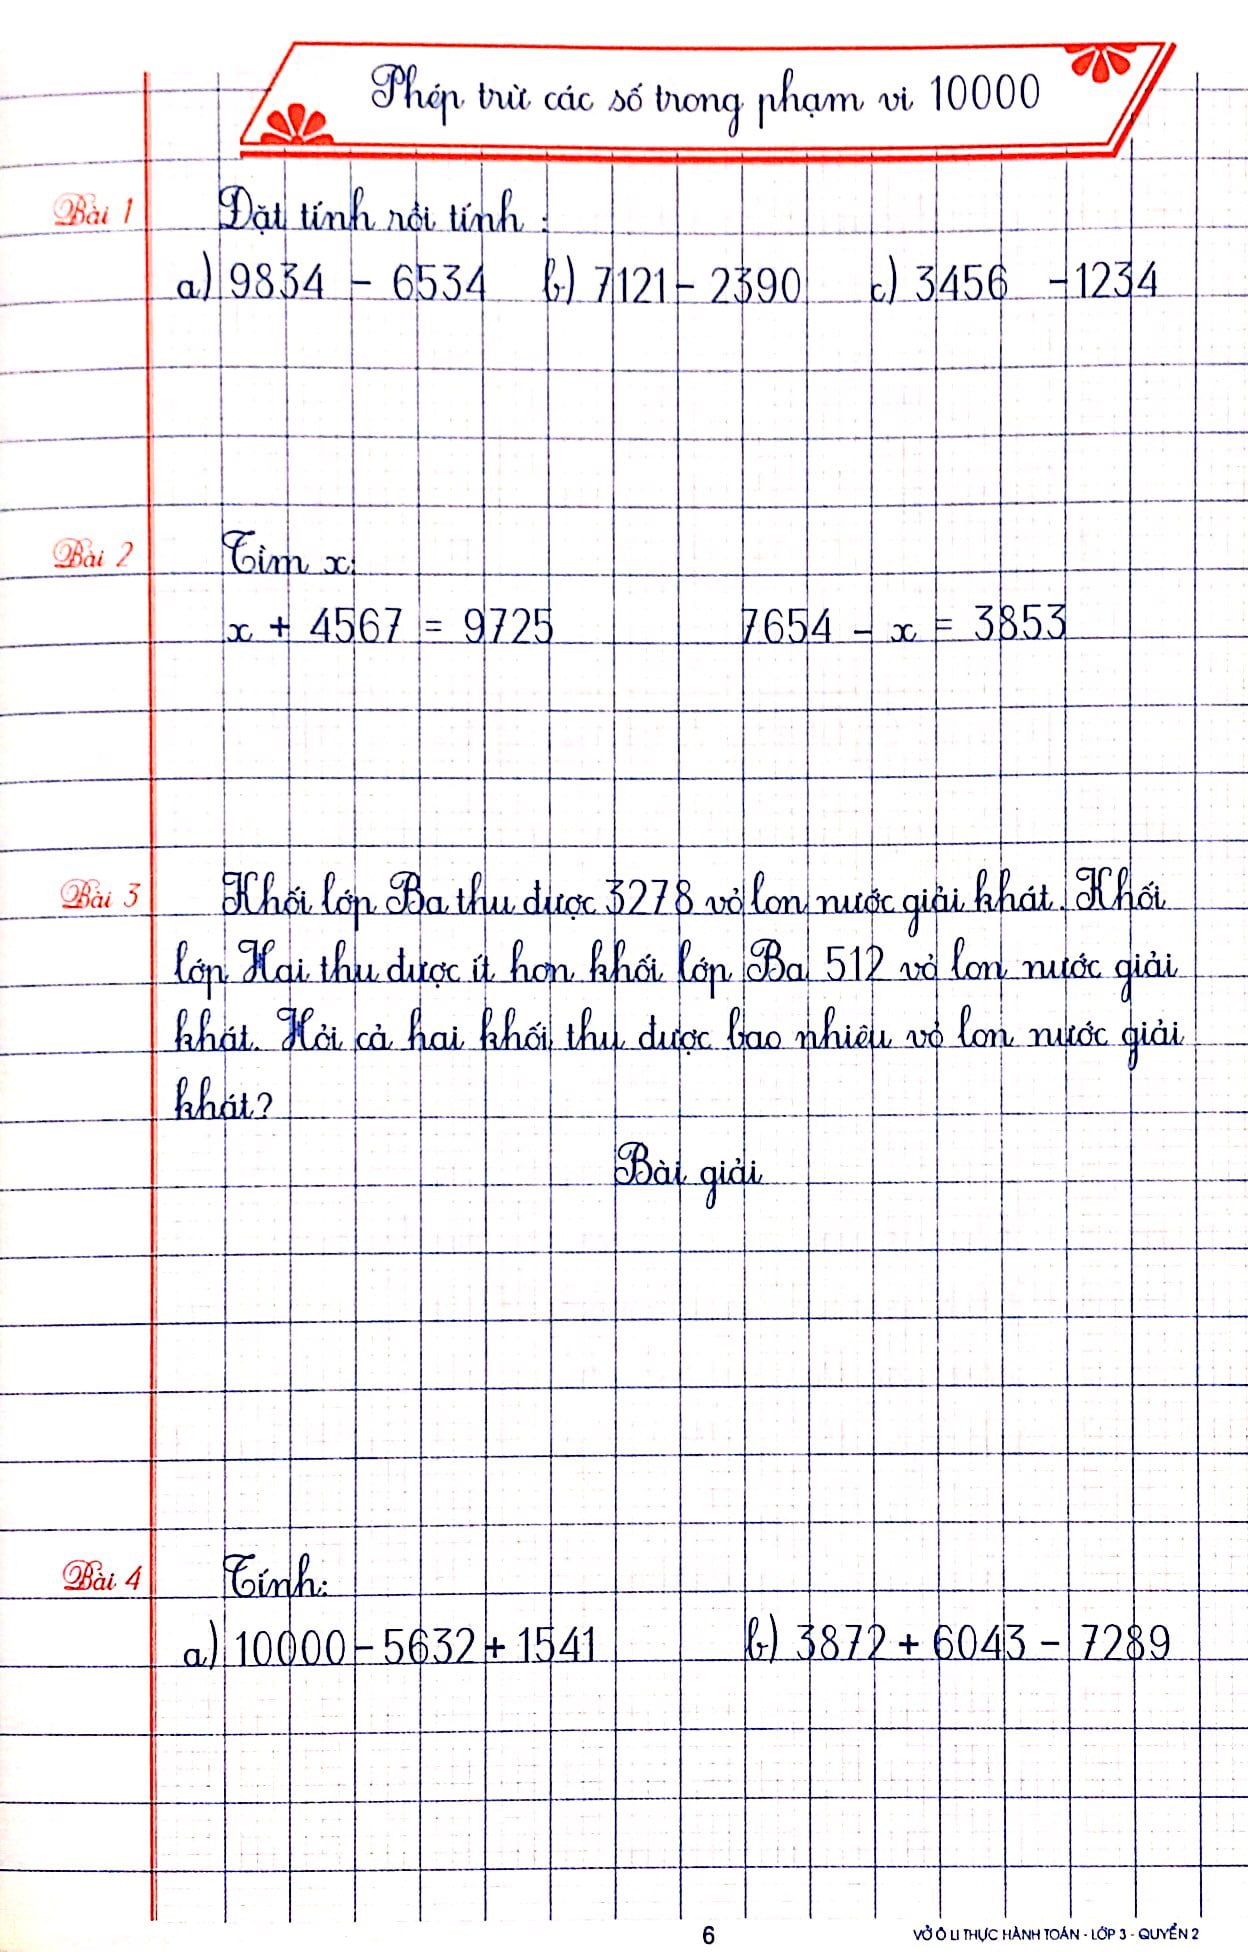 Phép trừ các số trong phạm vi 10000
Bài 1 Đặt tính rồi tính :
a) 9834 - 6534 b) 7121 - 2390 c) 3456 - 1234
Bài 2 Tìm x:
x + 4567 = 9725 7654 - x = 3853
Bài 3 Khối lớp Ba thu được 3278 vỏ lon nước giải khát. Khối
lớp Hai thu được ít hơn khối lớp Ba 512 vỏ lon nước giải
khát. Hỏi cả hai khối thu được bao nhiêu vỏ lon nước giải
khát?
Bài giải
Bài 4 Tính:
a) 10000 - 5632 + 1541 b) 3872 + 6043 - 7289
6 VỞ Ô LI THỰC HÀNH TOÁN - LỚP 3 - QUYỂN 2